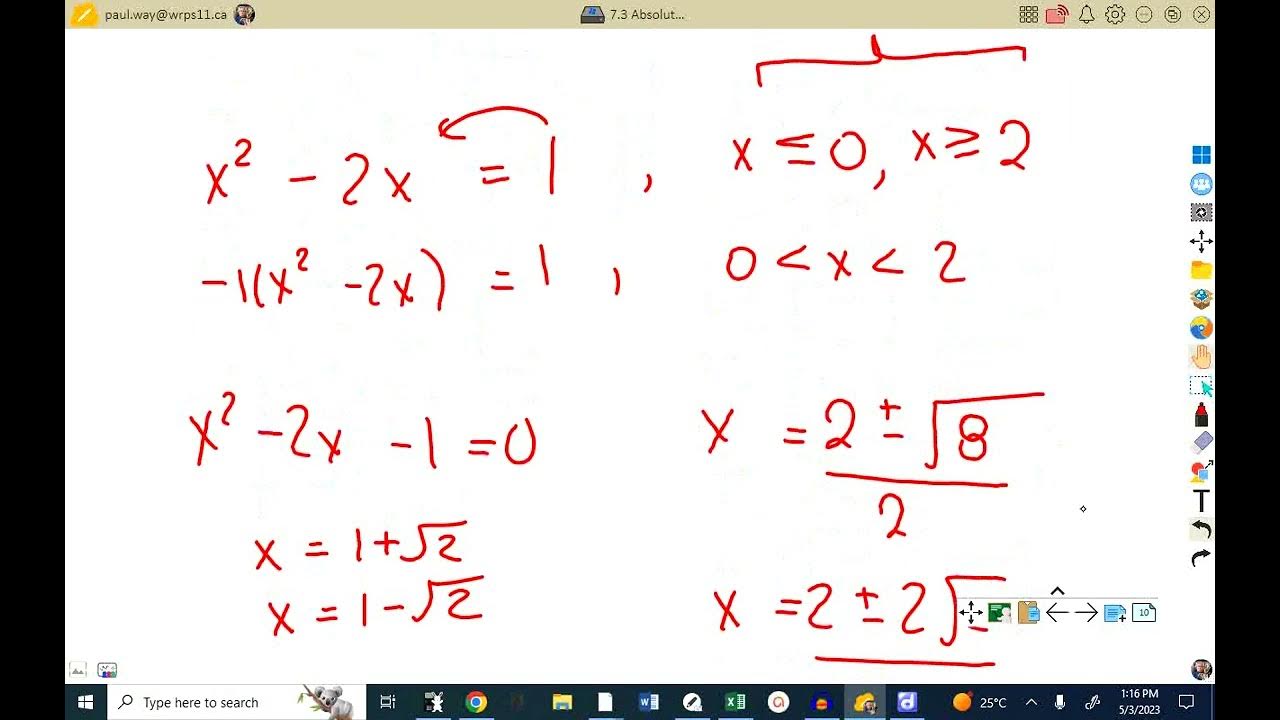 paul.way@wrps11.ca
7.3 Absolut...
x² - 2x = 1 , x ≤ 0, x ≥ 2
-1(x² - 2x) = 1 , 0 < x < 2
x² - 2x - 1 = 0
x = 1 + √2
x = 1 - √2
x = 2 ± √8
2
x = 2 ± 2√
T
10
Type here to search
25°C
1:16 PM
5/3/2023